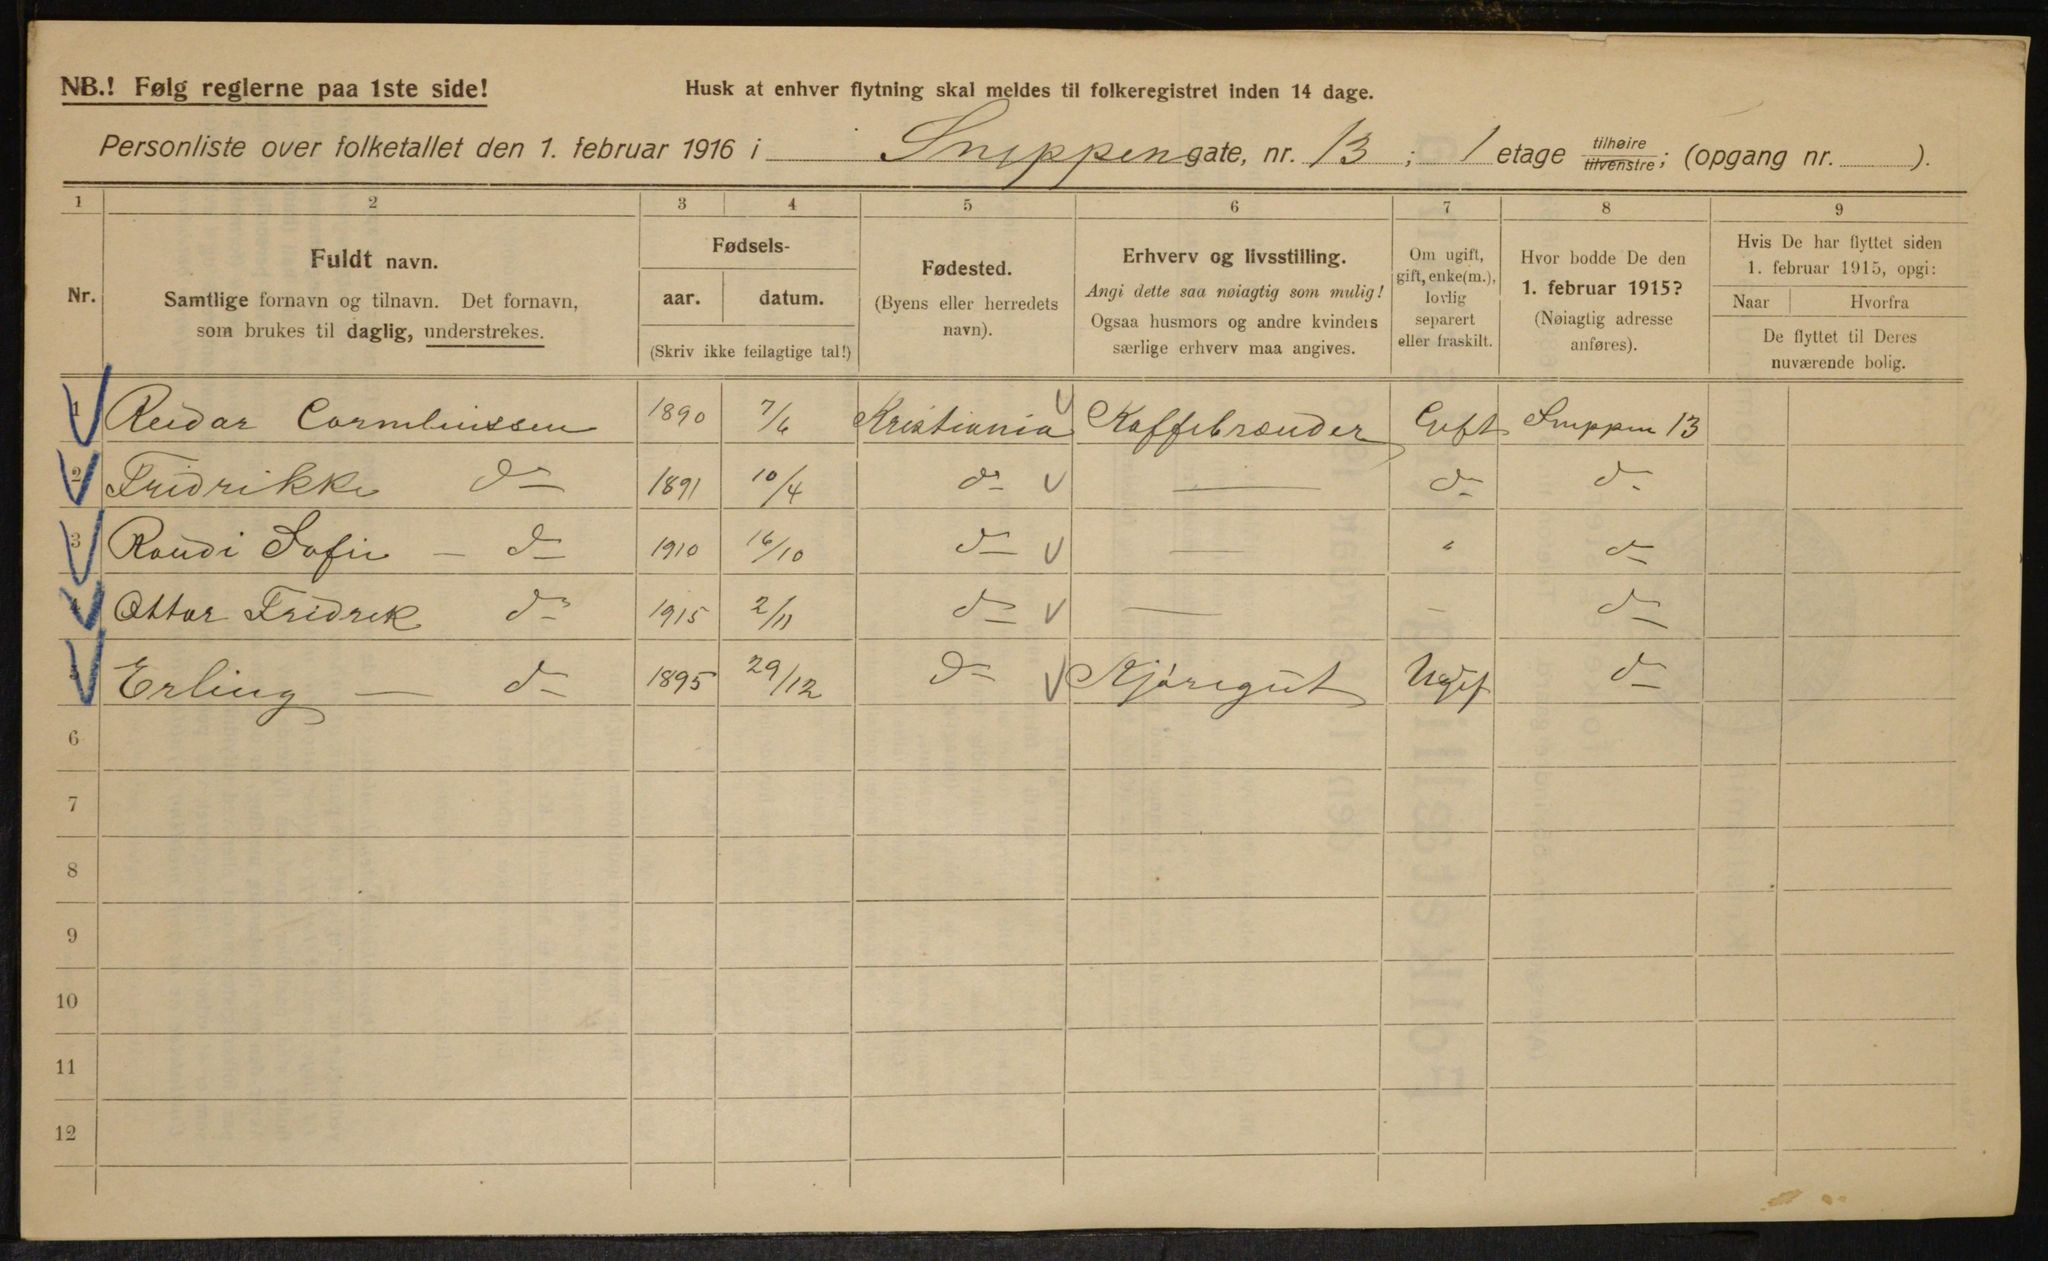 NB.! Følg reglerne paa 1ste side!
Husk at enhver flytning skal meldes til folkeregistret inden 14 dage.
Personliste over folketallet den 1. februar 1916 i Snippen gate, nr. 13 ; 1 etage tilhøire tilvenstre; (opgang nr. ).
1 2 3 4 5 6 7 8 9
Nr.
Fuldt navn.
Samtlige fornavn og tilnavn. Det fornavn,
som brukes til daglig, understrekes.
Fødsels-
aar. datum.
(Skriv ikke feilagtige tal!)
Fødested.
(Byens eller herredets
navn).
Erhverv og livsstilling.
Angi dette saa nøiagtig som mulig!
Ogsaa husmors og andre kvinders
særlige erhverv maa angives.
Om ugift,
gift, enke(m.),
lovlig
separert
eller fraskilt.
Hvor bodde De den
1. februar 1915?
(Nøiagtig adresse
anføres).
Hvis De har flyttet siden
1. februar 1915, opgi:
Naar Hvorfra
De flyttet til Deres
nuværende bolig.
1 Reidar Corneliussen 1890 7/6 Kristiania Kaffebrænder Gift Snippen 13
2 Fridrikke do 1891 10/4 do — do do
3 Randi Sofie — do 1910 16/10 do — " do
4 Ottar Fridrik do 1915 2/11 do — - do
5 Erling — do 1895 29/12 do Kjøregut Ugif do
6
7
8
9
10
11
12